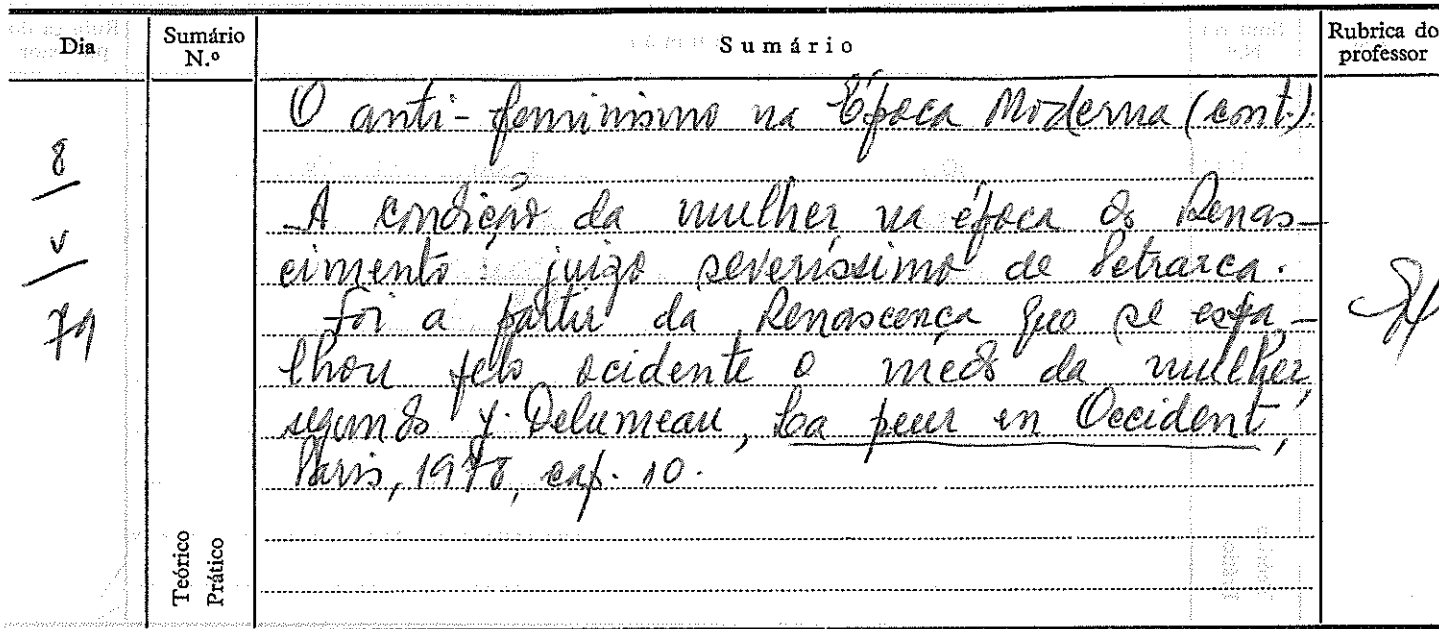 Dia
Sumário N.º
Sumário
Rubrica do professor
8
V
79
O anti-feminismo na Época Moderna (cont.).
- A condição da mulher na época do Renas-
cimento: juízo severíssimo de Petrarca.
Foi a partir da Renascença que se espa-
lhou pelo ocidente o medo da mulher,
segundo J. Delumeau, La peur en Occident,
Paris, 1978, cap. 10.
Teórico
Prático